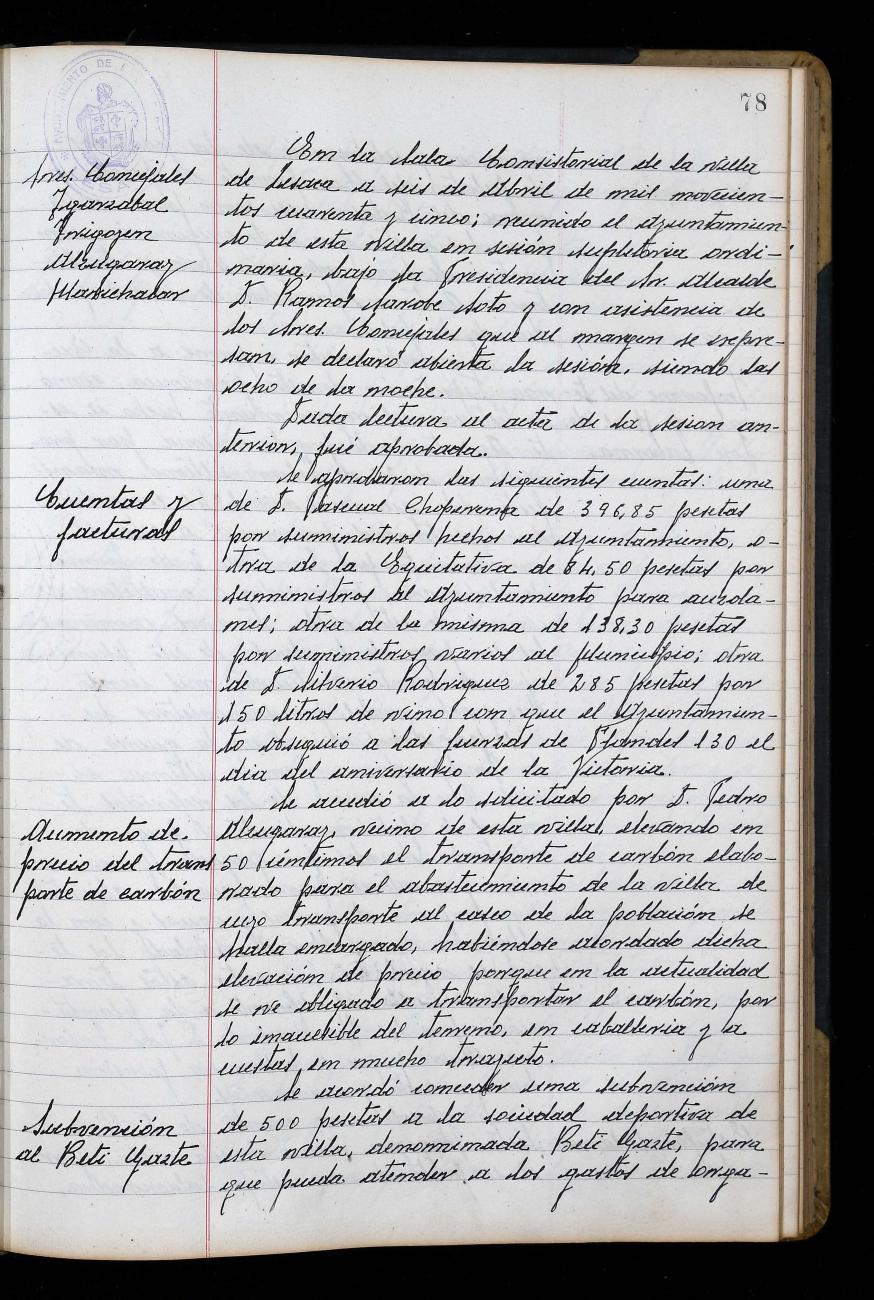 78
AYUNTAMIENTO DE
Sres. Concejales
Igarzabal
Irigoyen
Alzugaray
Marichalar
En la Sala Consistorial de la villa
de Lesaca a seis de Abril de mil novecien-
tos cuarenta y cinco; reunido el Ayuntamien-
to de esta villa en sesión supletoria ordi-
naria, bajo la Presidencia del Sr. Alcalde
D. Ramos Sarobe Soto y con asistencia de
los Sres. Concejales que al margen se expre-
san, se declaró abierta la sesión, siendo las
ocho de la noche.
Dada lectura al acta de la sesion an-
terior, fué aprobada.
Cuentas y
facturas
Se aprobaron las siguientes cuentas: una
de D. Pascual Choperena de 396,85 pesetas
por suministros hechos al Ayuntamiento, o-
tra de la Equitativa de 84,50 pesetas por
suministros al Ayuntamiento para auzola-
nes; otra de la misma de 138,30 pesetas
por suministros varios al Municipio; otra
de D. Silverio Rodriguez de 285 pesetas por
150 litros de vino con que el Ayuntamien-
to obsequió a las fuerzas de Flandes 130 el
dia del aniversario de la Victoria.
Aumento de
precio del trans
porte de carbón
Se accedió a lo solicitado por D. Pedro
Alzugaray, vecino de esta villa, elevando en
50 céntimos el transporte de carbón elabo-
rado para el abastecimiento de la villa de
cuyo transporte al casco de la población se
halla encargado, habiéndose acordado dicha
elevación de precio porque en la actualidad
se ve obligado a transportar el carbón, por
lo inaccesible del terreno, en caballeria y a
cuestas en mucho trayecto.
Subvención
al Beti Gazte
Se acordó conceder una subvención
de 500 pesetas a la sociedad deportiva de
esta villa, denominada Beti Gazte, para
que pueda atender a los gastos de orga-